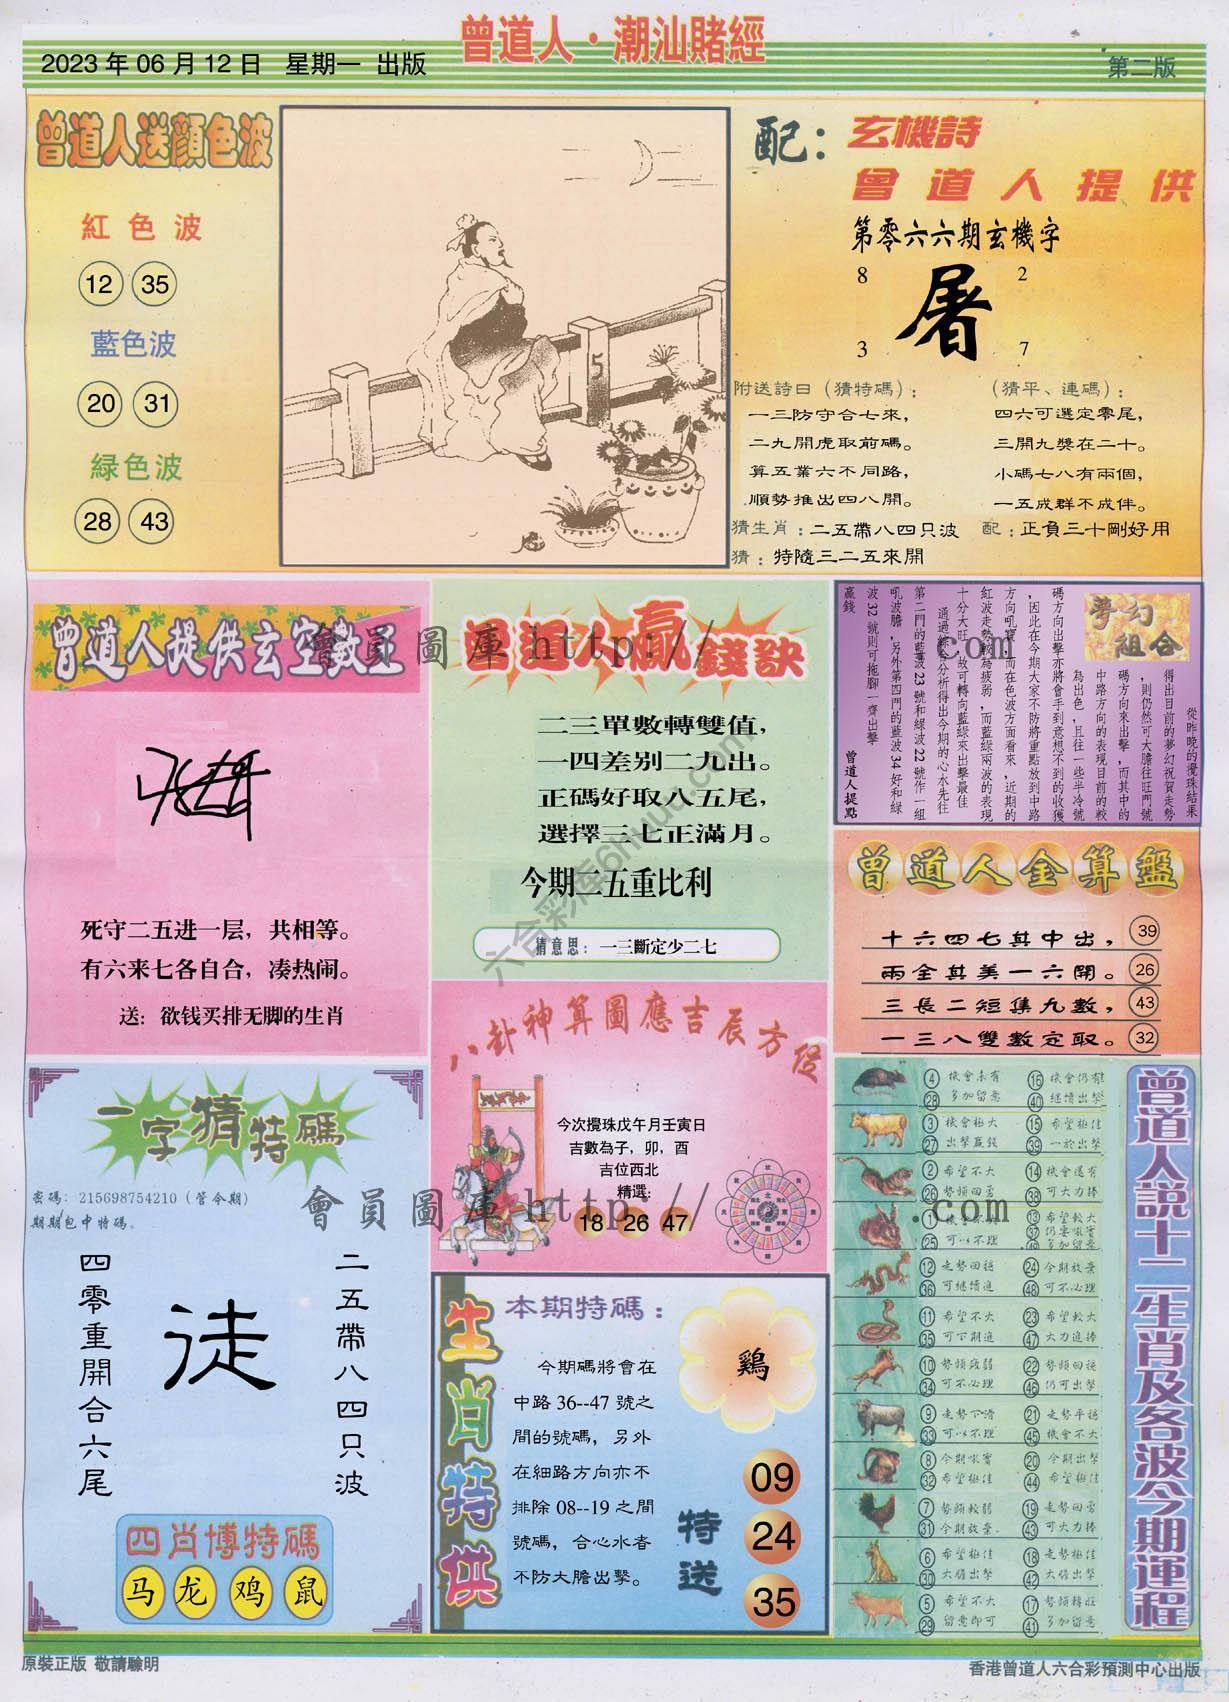 曾道人·潮汕賭經
2023年06月12日 星期一 出版
第二版
曾道人送顏色波
紅色波
12 35
藍色波
20 31
緑色波
28 43
5
配：
玄機詩
曾道人提供
第零六六期玄機字
8 2
屠
3 7
附送詩曰（猜特碼）：
一三防守合七來，
二九開虎取前碼。
算五業六不同路，
順勢推出四八開。
猜生肖：二五帶八四只波
猜：特隨三二五來開
（猜平、連碼）：
四六可選定零尾，
三開九獎在二十。
小碼七八有兩個，
一五成群不成伴。
配：正負三十剛好用
曾道人提供玄空數王
死守二五进一层，共相等。
有六来七各自合，凑热闹。
送：欲钱买排无脚的生肖
曾道人贏錢訣
二三單數轉雙值，
一四差别二九出。
正碼好取八五尾，
選擇三七正滿月。
今期二五重比利
猜意思：一三斷定少二七
會員圖庫 http://
.com
夢幻組合
從昨晚的攪珠結果
得出目前的夢幻祝賀走勢
，則仍然可大膽往旺門號
碼方向來出擊，而其中的
中路方向的表現目前的較
為出色，且往一些半冷號
碼方向出擊亦將會手到意想不到的收獲
，因此在今期大家不防將重點放到中路
方向吼寶，而在色波方面看來，近期的
紅波走勢較為疲弱，而藍綠兩波的表現
十分大旺，故可轉向藍綠來出擊最佳
通過綜合分析得出今期的心水先往
第二門的藍波23號和緑波22號作一組
吼波膽，另外第四門的藍波34好和緑
波32號則可拖腳一齊出擊
贏錢
曾道人提點
曾道人金算盤
十六四七其中出，39
兩全其美一六開。26
三長二短集九數，43
一三八雙數定取。32
八卦神算圖應吉辰方位
今次攪珠戊午月壬寅日
吉數為子，卯，酉
吉位西北
精選：
18 26 47
會員圖庫 http://
.com
六合彩库6hkuu.com
一字猜特碼
密碼：215698754210（管令期）
期期包中特碼。
二五帶八四只波
徒
四零重開合六尾
四肖博特碼
马 龙 鸡 鼠
生肖特供
本期特碼：
今期碼將會在
中路36--47號之
間的號碼，另外
在細路方向亦不
排除08--19之間
號碼，合心水者
不防大膽出擊。
鷄
特送
09
24
35
曾道人説十二生肖及各波今期運程
4 28 機會未有 多加留意 16 40 機會仍有 繼續出擊
3 27 機會極大 出擊贏錢 15 39 希望極佳 一於出擊
2 26 希望不大 勢頭回勇 14 38 機會還有 可大力捧
1 25 可以不理 13 37 49 希望較大 仍要吼實 多加留意
12 36 走勢回穩 可繼續追 24 48 今期放棄 可不必理
11 35 希望不大 可下期追 23 47 希望較大 大力追捧
10 34 勢頭疲弱 可不必理 22 46 勢頭回穩 仍可出擊
9 33 走勢下滑 可以不理 21 45 走勢平穩 機會不大
8 32 今期吼實 希望極佳 20 44 今期出擊 希望極佳
7 31 勢頭較弱 今期放棄 19 43 走勢回勇 可大力捧
6 30 希望極佳 大膽出擊 18 42 走勢極佳 大膽出擊
5 29 希望不大 留意即可 17 41 勢頭轉旺 多加留意
原裝正版 敬請驗明
香港曾道人六合彩預測中心出版